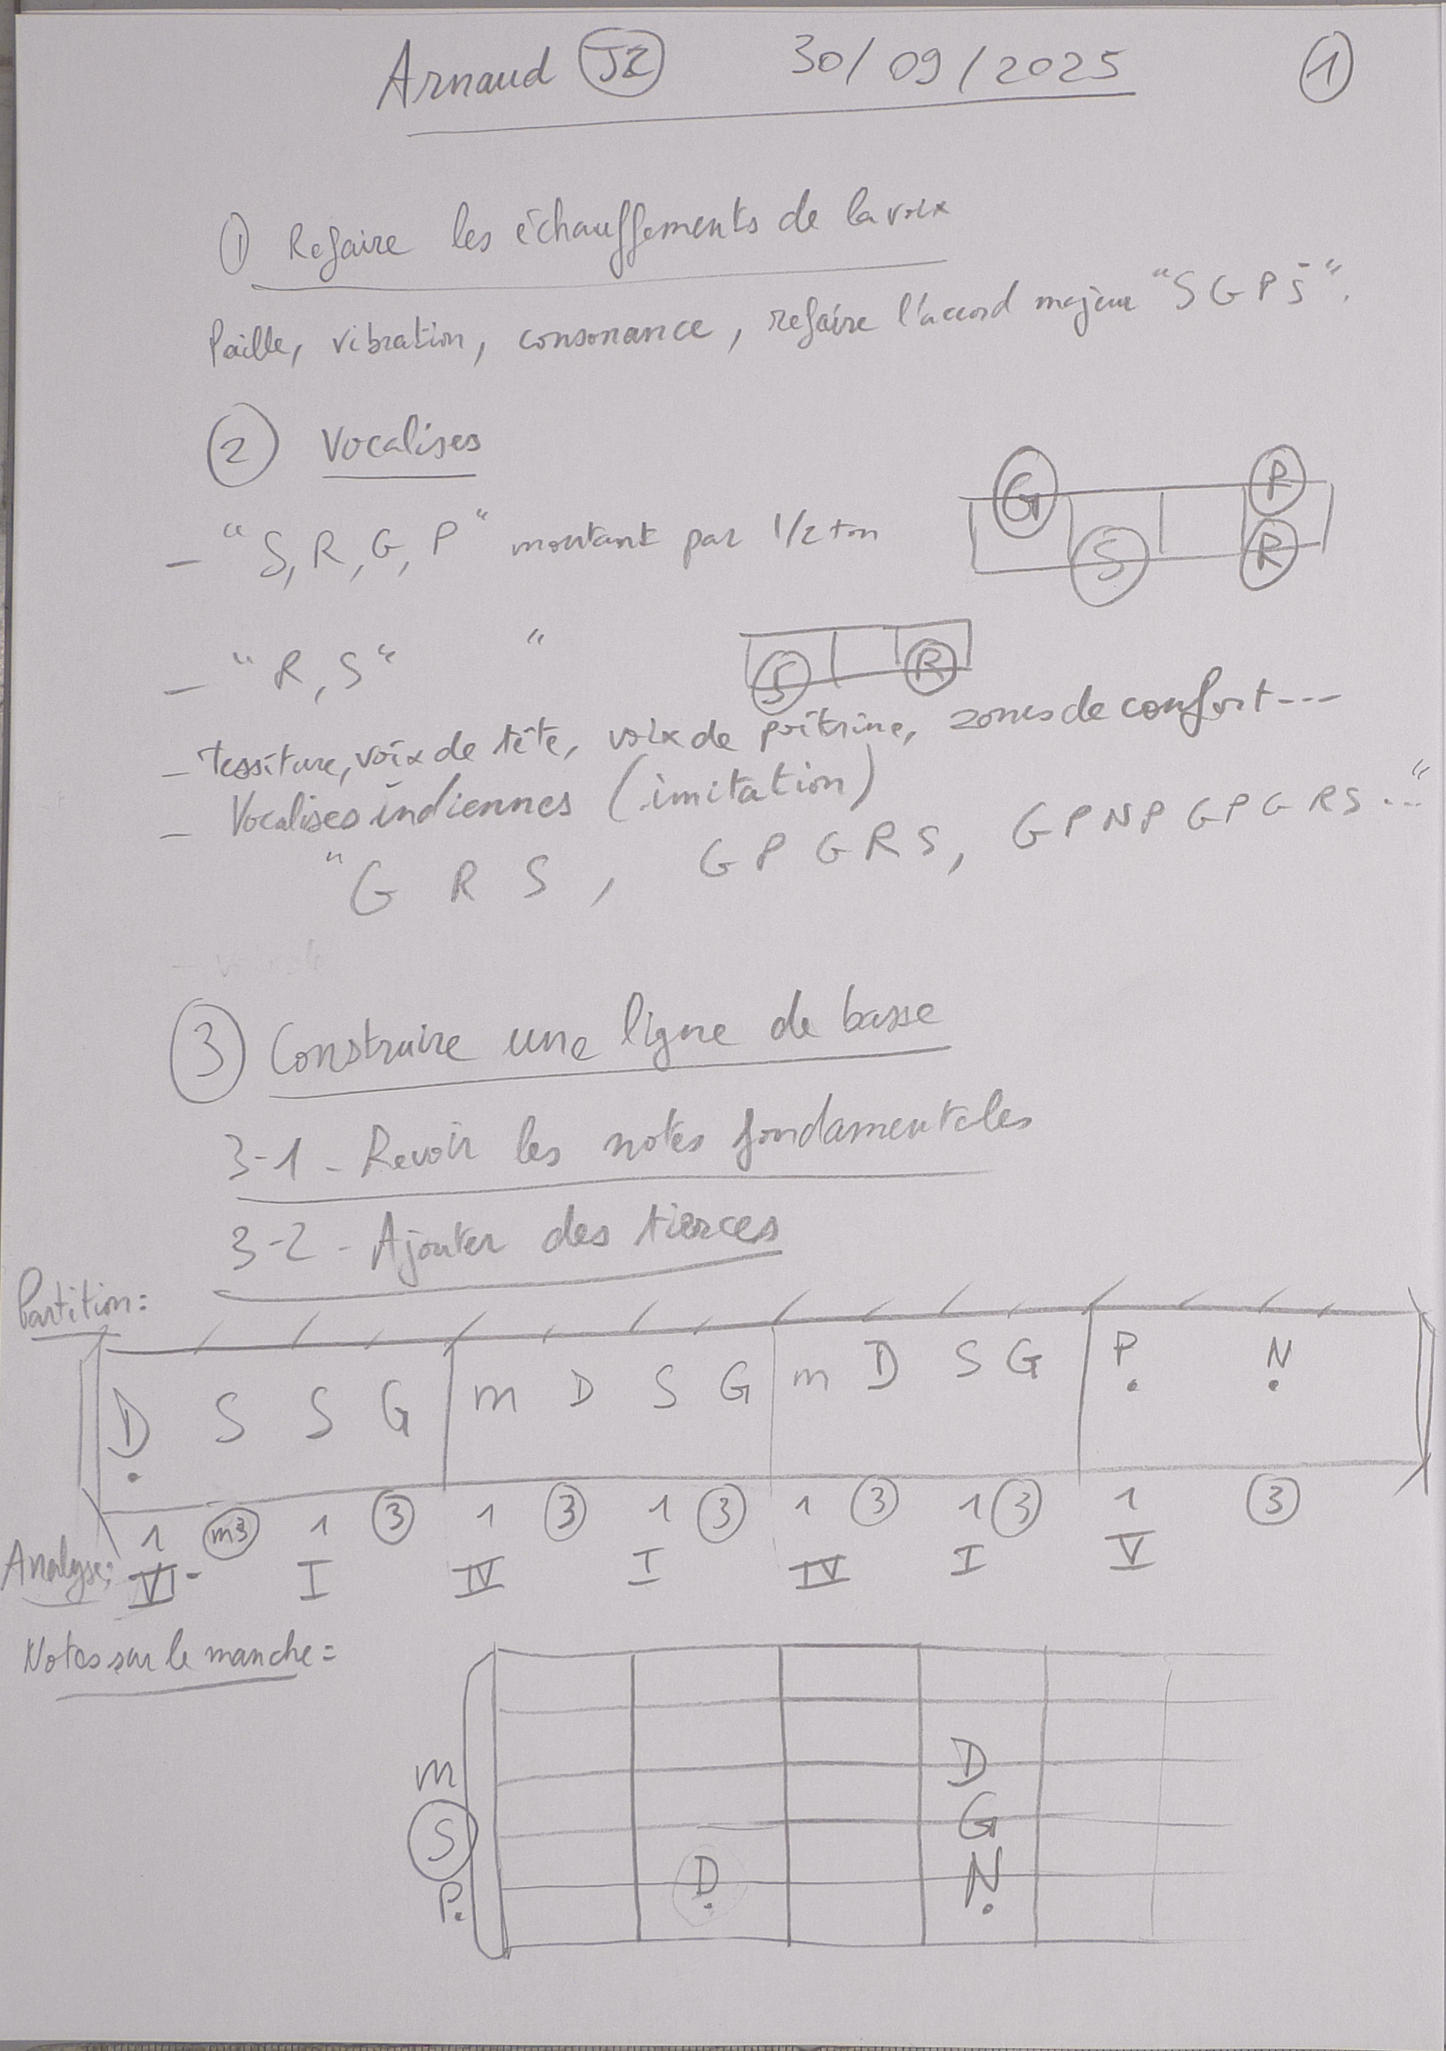 Arnaud J2 30/09/2025 1
1 Refaire les échauffements de la voix
Paille, vibration, consonance, refaire l'accord majeur "S G P Ṡ".
2 Vocalises
- "S, R, G, P" montant par 1/2 ton
G P
S R
- "R, S" "
S R
- Tessiture, voix de tête, voix de poitrine, zones de confort---
- Vocalises indiennes (imitation)
"G R S, G P G R S, G P N P G P G R S..."
3 Construire une ligne de basse
3-1 - Revoir les notes fondamentales
3-2 - Ajouter des tierces
Partition:
Ḍ S S G m D S G m D S G P̣ Ṇ
1 m3 1 3 1 3 1 3 1 3 1 3 1 3
Analyse: VI- I IV I IV I V
Notes sur le manche:
m D
S G
P. D. N.